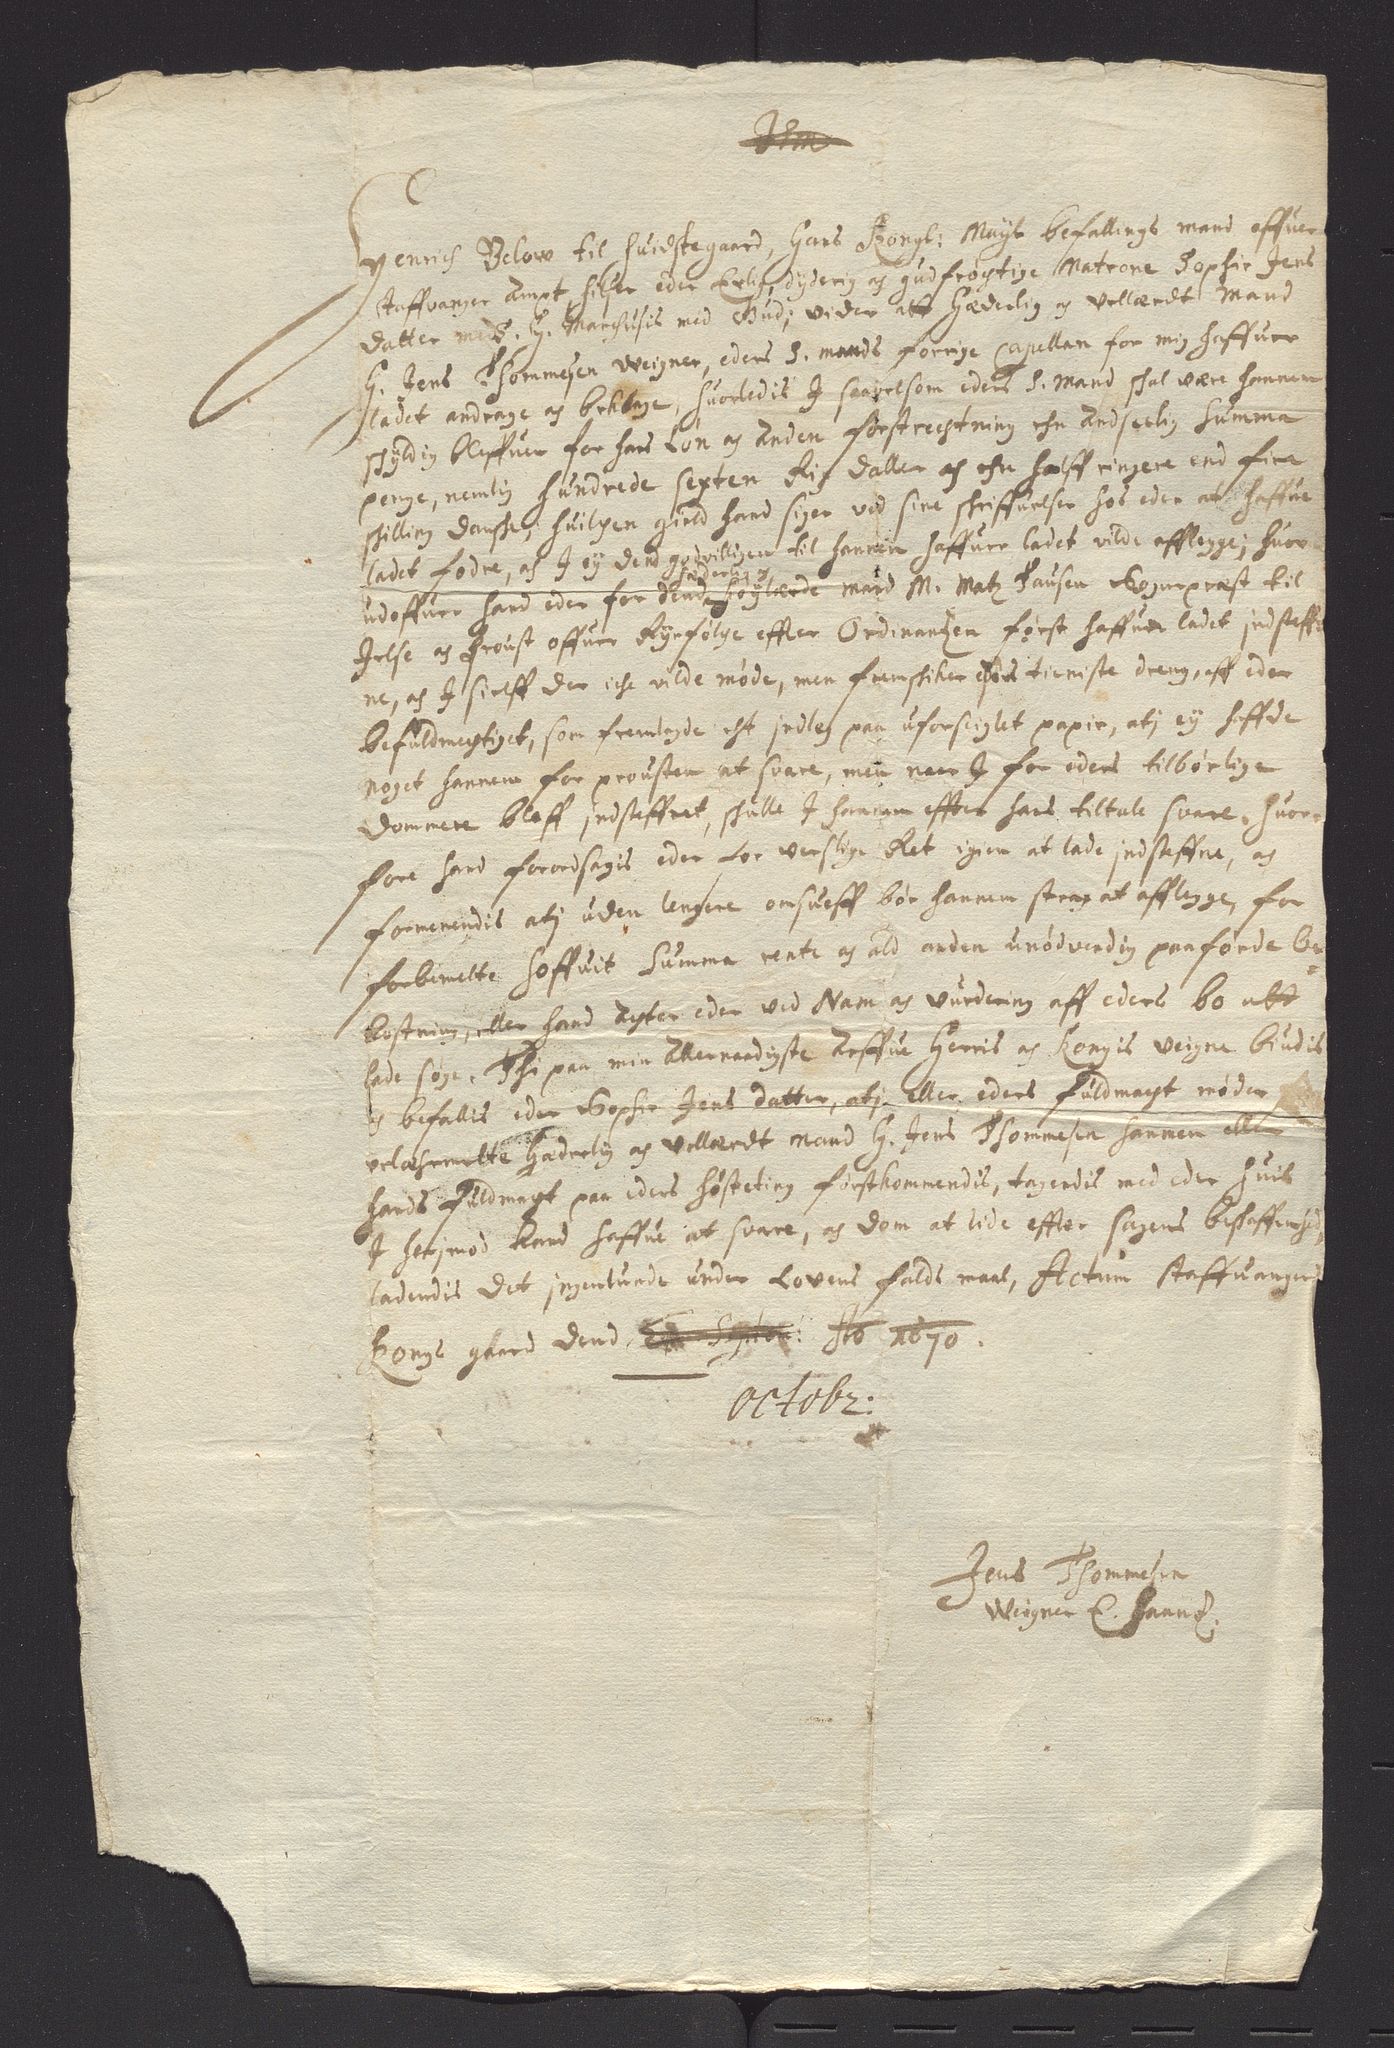 Henrich Below til Huidstegaard, Hans Kongl: Mayts befallings mand offuer
Staffuanger Ampt, hilser eder Erlig, dyderig og gudfrögtige Matrone Sophie Jens
datter med Gud; vider att Hæderlig og vellærdt Mand
H. Jens Thommesen Weigner, eders S. mands forrige Capellan for mig haffuer
ladet andrage og beklage, huorledis J saauelsom eders S. Mand skal være hannem
skyldig bleffuen for hans Løn og Anden forstrechtning ehn Anseelig Summa
penge, nemlig Hundrede sexten Rix daller og ehn halff ringere end fire
skilling danske, huilchen gield hand siger ved sine schriffuelser hos eder at haffue
ladet fodre, og J ey dend godvilligen til hannem haffuer ladet vilde afflegge; huor
udoffuer hand eder for dend Hæderlig og Höylærde mand M. Matz Pausen Sognepræst til
Jelse og Proust offuer Ryefølge effter Ordinantzen først haffuer ladet indsteff
ne, og J sielff der iche vilde møde, men fremskiker eders tieniste dreng, aff eder
befuldmegtiget, som fremlagde eht indleg paa uforseiglet papir, atj ey haffde
noget hannem for prousten at svare, men naar J for eders tilbørlige
Dommere bleff indsteffnet, skulle J hannem effter hans tiltale svare. Huor
fore hand foraarsagis eder for verslige Ret igien at lade indsteffne, og
formenendis atj uden lengere omsueff bør hannem strax at afflegge, for
forbemelte Hoffuit Summa rente og ald anden unødvendig paaførde be-
kostning, eller hand agter eder ved Nam og vurdering aff eders bo udt
lade søge. Thi paa min Allernaadigste Arffue Herris og Kongis veigne biudis
og befallis eder Sophie Jens datter, atj eller eders fuldmagt møder
velbemelte Hæderlig og vellærdt mand H. Jens Thommesen hannem eller
hands fuldmagt paa eders høsteting førstkommendis, tagendis med eder huis
J herjmod kand haffue at svare, og dom at lide effter sagens beskaffenhed,
ladendis det ingenlunde under Lovens falds maal, Actum Staffuangers
Kongs gaard dend Septem: Ao 1670.
Octobr:
Jens Thommesen
Weigner E. Haand.